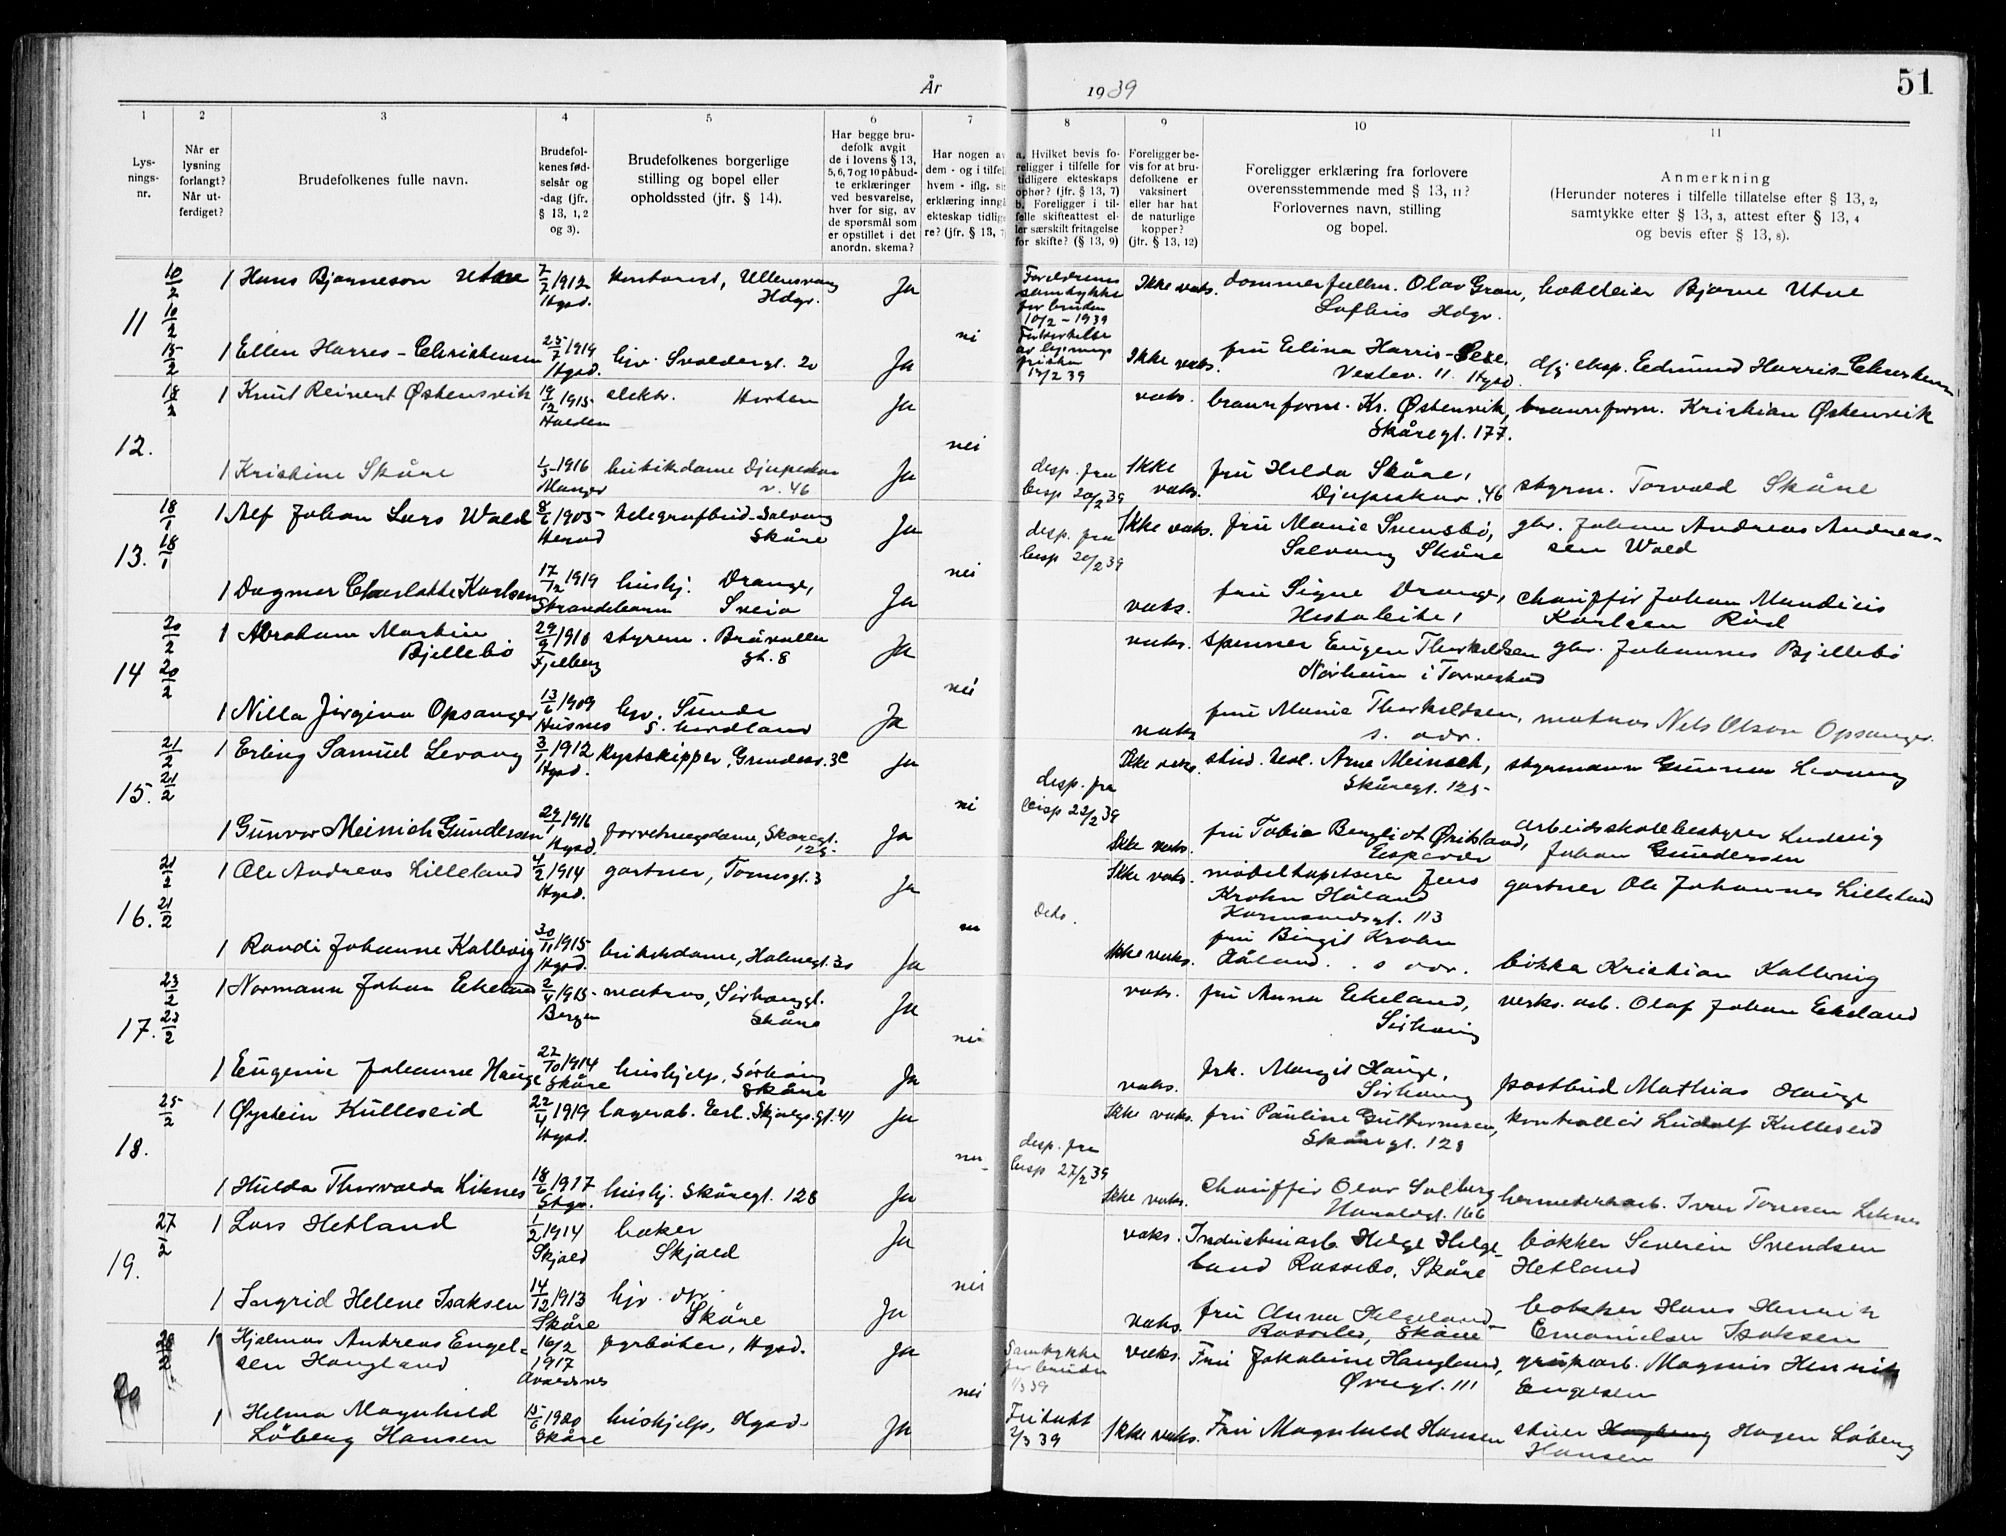 År 1939
51
1 2 3 4 5 6 7 8 9 10 11
Lys-
nings-
nr.
Når er
lysning
forlangt?
Når ut-
ferdiget?
Brudefolkenes fulle navn.
Brudefol-
kenes fød-
selsår og
-dag (jfr.
§ 13, 1, 2
og 3).
Brudefolkenes borgerlige
stilling og bopel eller
opholdssted (jfr. § 14).
Har begge bru-
defolk avgit
de i lovens § 13,
5, 6, 7 og 10 påbud-
te erklæringer
ved besvarelse,
hver for sig, av
de spørsmål som
er opstillet i det
anordn. skema?
Har nogen av
dem - og i tilfel
hvem - iflg. si
erklæring inngå
ekteskap tidlig
re? (jfr. § 13, 7
a. Hvilket bevis fo-
religger i tilfelle for
tidligere ekteskaps
ophør? (jfr. § 13, 7)
b. Foreligger i til-
felle skifteattest el-
ler særskilt fritagelse
for skifte? (§ 13, 9)
Foreligger be-
vis for at bru-
defolkene er
vaksinert
eller har hat
de naturlige
kopper?
(jfr. § 13, 12)
Foreligger erklæring fra forlovere
overensstemmende med § 13, 11?
Forlovernes navn, stilling
og bopel.
Anmerkning
(Herunder noteres i tilfelle tillatelse efter § 13, 2,
samtykke efter § 13, 3, attest efter § 13, 4
og bevis efter § 13, 8).
11 10/2 10/2 15/2
1 Hans Bjarneson Utne 7/7 1912 Hgsd. kontorist, Ullensvang Hdgr. Ja
Foreldrenes samtykke for bruden 10/2-1939
Ikke vaks. dommerfullm. Olav Gran, Lofthus Hdgr. hotelleier Bjarne Utne
1 Ellen Harris-Christensen 25/7 1919 Hgsd. hjv. Svoldergt. 20 Ja nei
Ikke vaks. fru Elina Harris-Sexe Vestev. 11. Hgsd. disp. Edmund Harris-Christensen
12. 18/2
1 Knut Reinert Østensvik 19/12 1915 Halden elektr. Horten Ja
vaks. brannform. Kr. Østenvik, Skåregt. 177. brannform. Kristian Østenvik
1 Kristine Skåre 1916 Manger butikdame Djupaskar v. 46 Ja nei
desp. fra bisp 20/2 39 Ikke vaks. fru Hilda Skåre, Djupeskar. 46 styrm. Torvald Skåre
13. 18/1 18/1
1 Alf Johan Lars Wold 8/6 1905 telegrafbud Solvang Skåre Ja
desp. fra bisp 20/2 39 Ikke vaks. fru Marie Svensbø, Solvang Skåre gbr. Johan Andreas Andreas-
sen Wold
1 Dagmar Charlotte Karlsen 17/12 1919 Strandebarm hushj. Drange, Sveio Ja nei
vaks. fru Signe Drange, chauffør Johan Mandius
Karlsen Rød
14 20/2 20/2
1 Abraham Martin Bjellebø 29/9 1910 Fjelberg styrm. Bråvalla gt. 8 Ja
vaks. spinner Eugen Thorkildsen Norheim i Torvestad gbr. Johannes Bjellebø
1 Nilla Jirgina Opsanger 13/6 1909 Husnes hjv. Sunde S. hordland Ja nei
vaks fru Marie Thorkildsen, s. adr. matros Nils Olson Opsanger.
15. 21/2 21/2
1 Erling Samuel Levang 3/1 1912 Hgsd. kystskipper, Grindess. 3c Ja
Ikke vaks. stud. Arne Meinich, Skåregt. 125 styrmann Gunnar Levang
1 Gunvor Meinich Gundersen 29/1 1916 Hgsd. forretningsdame, Skåregt. 125 Ja nei
desp. fra bisp 22/2 39 Ikke vaks. fru Tobia Bergliot Øritsland, Espevær arbeidsskolebestyrer Ludvig
Johan Gundersen
16. 21/2 21/2
1 Ole Andreas Lilleland 4/2 1914 Hgsd. gartner, Tornesgt. 3 Ja
Ikke vaks. møbeltapetserer Jens Krohn Håland Karmsundsgt. 113 gartner Ole Johannes Lilleland
1 Randi Johanne Kallevig 30/11 1915 Hgsd. butikkdame, Holmegt. 30 Ja nei
Deto. Ikke vaks. fru Birgit Krohn Håland. s adr. bøkker Kristian Kallevig
17. 23/2 23/2
1 Normann Johan Eikeland 2/4 1915 Bergen matros, Sørhauggt. Skåre Ja
vaks. fru Anna Eikeland, Sørhaug verks. arb. Olaf Johan Eikeland
1 Eugenie Johanne Hauge 22/10 1914 Skåre hushjelp, Sørhaug Skåre Ja nei
vaks. frk. Margit Hauge, Sørhaug postbud Mathias Hauge
18. 25/2
1 Øystein Kulleseid 22/4 1919 Hgsd. lagerab. Erl. Skjalgs.gt. 41 Ja
Ikke vaks. fru Pauline Guttormsen, Skåregt. 128 kontrollør Ludolf Kulleseid
1 Hulda Thorvalda Liknes 18/6 1917 Stgr. hushj. Skåregt. 128 Ja nei
desp. fra bisp 27/2 39 Ikke vaks. Chauffør Olav Solberg Haraldsgt. 166 hermetikkarb. Iver Tonesen Liknes
19. 27/2
1 Lars Hetland 1/2 1914 Skjold baker Skjold Ja
vaks. Industriarb. Helge Helge-
land Rossebø, Skåre bøkker Severin Svendsen
Hetland
1 Ingrid Helene Isaksen 14/12 1913 Skåre hjv. Skåre Ja nei
vaks. fru Anna Helgeland Rossebø, Skåre bøkker Hans Henrik
Emanuelsen Isaksen
20 28/2
1 Hjalmar Andreas Engel-
sen Haugland 16/2 1917 Avaldsnes fyrbøter, Hgsd. Ja
Samtykke for bruden 1/3 39 vaks. Fru Jakobine Haugland, Øvregt. 111 grubearb. Magnus Henrik
Engelsen
1 Helma Magnhild
Løberg Hansen 15/6 1920 Skåre hushjelp, Hgsd. Ja nei
Fritatt 2/3 39 Ikke vaks. Fru Magnhild Hansen stuer Hagen Løberg
Hansen